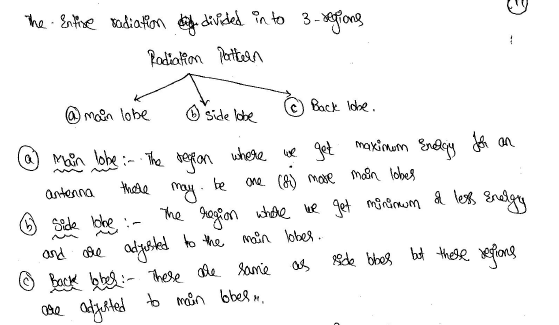 The Entire radiation divided in to 3-regions
Radiation Pattern
(a) main lobe (b) side lobe (c) Back lobe.
(a) Main lobe :- The region where we get maximum Energy for an
antenna there may be one (or) more main lobes
(b) Side lobe :- The region where we get minimum & less Energy
and are adjusted to the main lobes.
(c) Back lobes :- These are same as side lobes but these regions
are adjusted to main lobes.